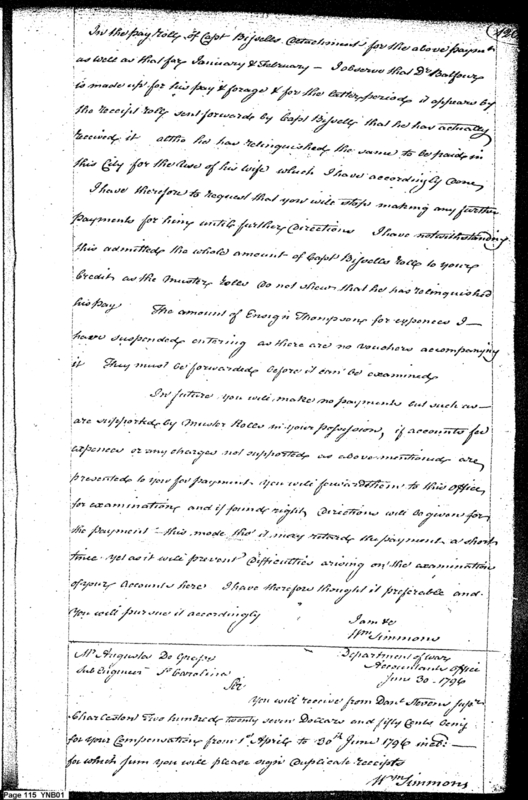 In the pay rolls of Capt Bissells detachment for the above paymt
as well as that for January & February – I observe that Dr Balfour
is made up for his pay & forage & for the latter period it appears by
the receipt rolls sent forward by Capt Bissells that he has actually
received it altho he has relinquished the same to be paid in
this City for the use of his wife which I have accordingly done
I have therefore to request that you will stop making any further
payments for him until further directions I have notwithstanding
this admitted the whole amount of Capt Bissells rolls to your
Credit as the Muster rolls do not shew that he has relinquished
his pay The amount of Ensign Thompsons for expences I –
have suspended entering as there are no vouchers accompanying
it They must be forwarded before it can be examined
In future you will make no payments but such as –
are supported by Muster Rolls in your possession, if accounts for
expences or any charges not supported as above mentioned are
presented to you for payment you will forward them to this office
for examination and if found right, directions will be given for
the payment – this mode tho' it may retard the payment a short
time yet as it will prevent difficulties arising on the examination
of your accounts here I have therefore thought it preferable and
you will pursue it accordingly
I am &c
Wm Simmons
Department of War
Mr Augusta De Grasse
Accountants office
Sub Engineer So Carolina
June 30 – 1796
Sir
You will receive from Danl Stevens Supr
Charleston Two hundred twenty seven Dollars and fifty Cents being
for your Compensation from 1st April to 30th June 1796 incl: –
for which sum you will please sign duplicate receipts
Wm Simmons
Page 115 YNB01